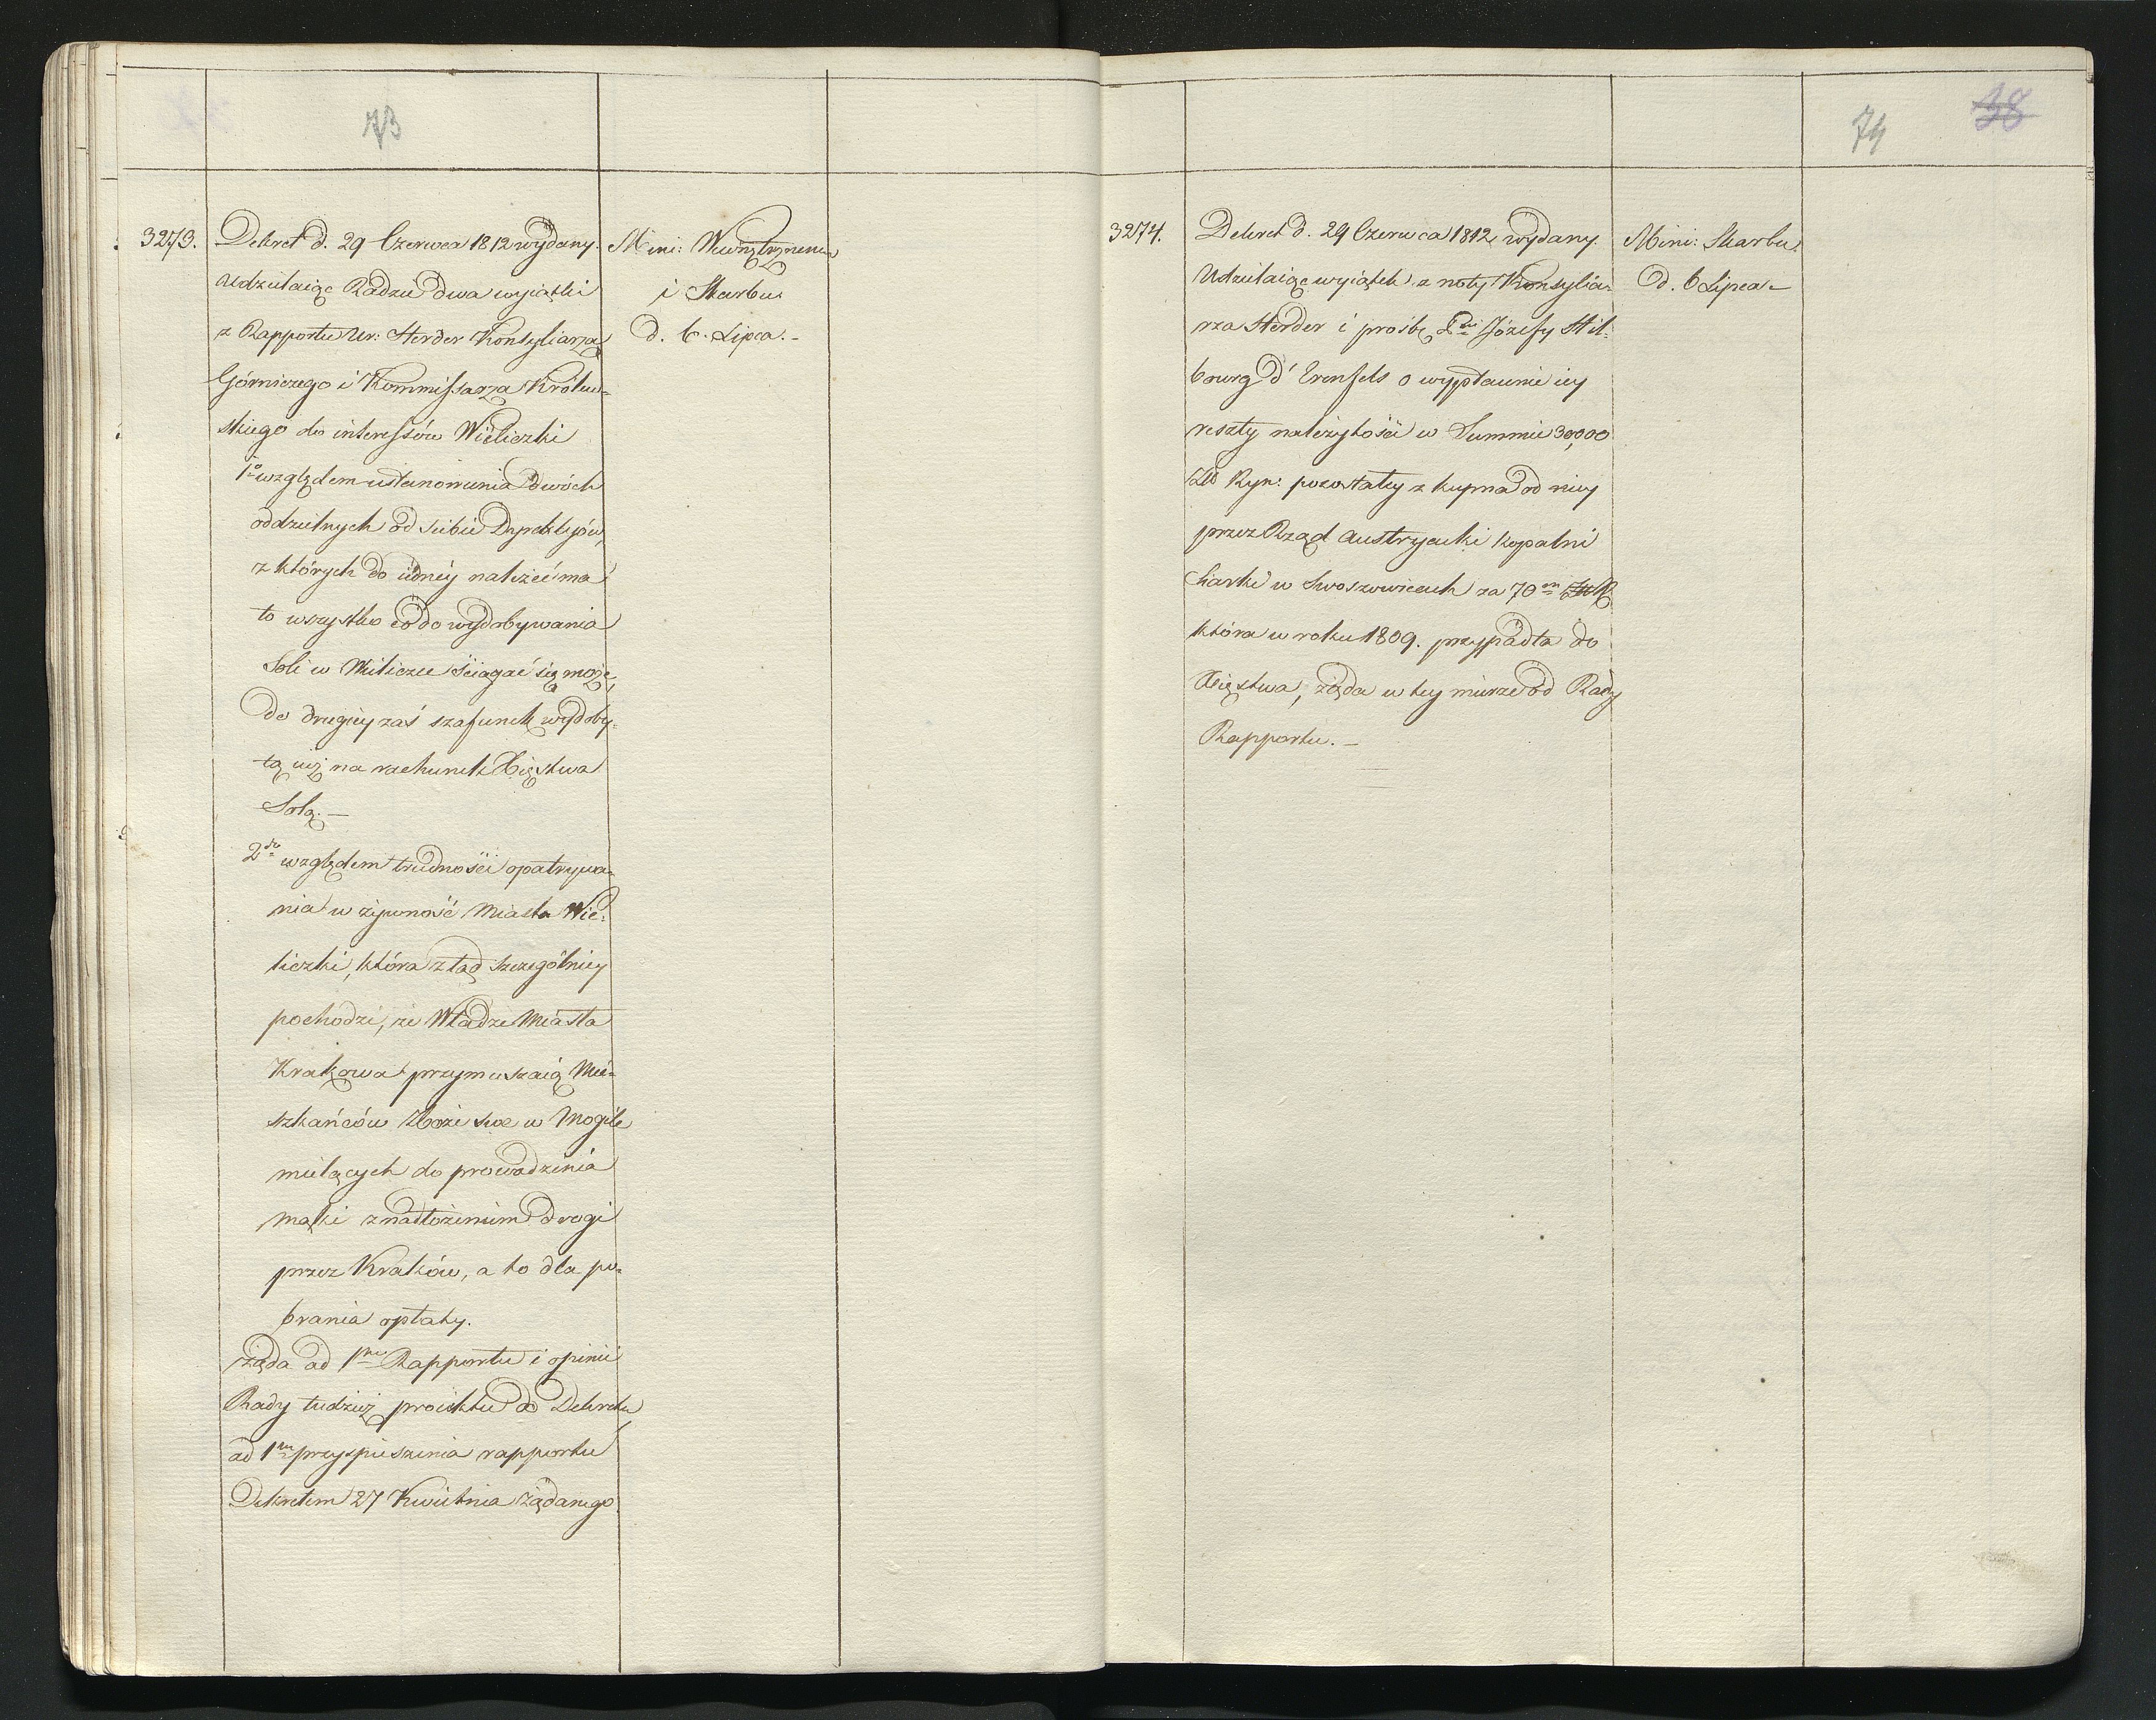 73
3273.
Dekret d. 29 Czerwca 1812 wydany.
Udzielaiąc Radzie dwa wyiątki
z Rapportu Ur: Herder Konsyliarza
Górniczego i Kommissarza Królew-
skiego do interessów Wieliczki
1o względem ustanowienia dwóch
oddzielnych od siebie Dyrekcyów,
z których do iedney należeć ma
to wszystko co do wydobywania
Soli w Wieliczce ściągać się może,
do drugiey zaś szafunek wydoby-
tą iuż na rachunek Xięstwa
Solą. —
2do względem trudności opatrywa-
nia w żywność Miasta Wie-
liczki, która ztąd szczególniey
pochodzi, że Władze Miasta
Krakowa przymuszaią Mie-
szkańców zboże swe w Mogile
mielących do prowadzenia
mąki z nadłożeniem drogi
przez Kraków, a to dla po-
brania opłaty.
żąda ad 1mu Rapportu i opinii
Rady tudzież proiektu do Dekretu,
ad 1mu przyspieszenia rapportu
Dekretem 27 Kwietnia żądanego.
Mini: Wewnętrznemu
i Skarbu
d. 6. Lipca. -
74 38
3274.
Dekret d. 29 Czerwca 1812 wydany.
Udzielaiąc wyiątek z noty Konsylia-
rza Herder i prośbę Józefy Hil-
bourg d'Erenfels o wypłacenie iey
reszty należytości w Summie 30,000
Zło Ryn: pozostałey z kupna od niey
przez Rząd Austryacki kopalni
Siarki w Swoszowicach za 70m ZłR
która w roku 1809. przypadła do
Xięstwa, żąda w tey mierze od Rady
Rapportu. —
Mini: Skarbu.
d. 6 Lipca -